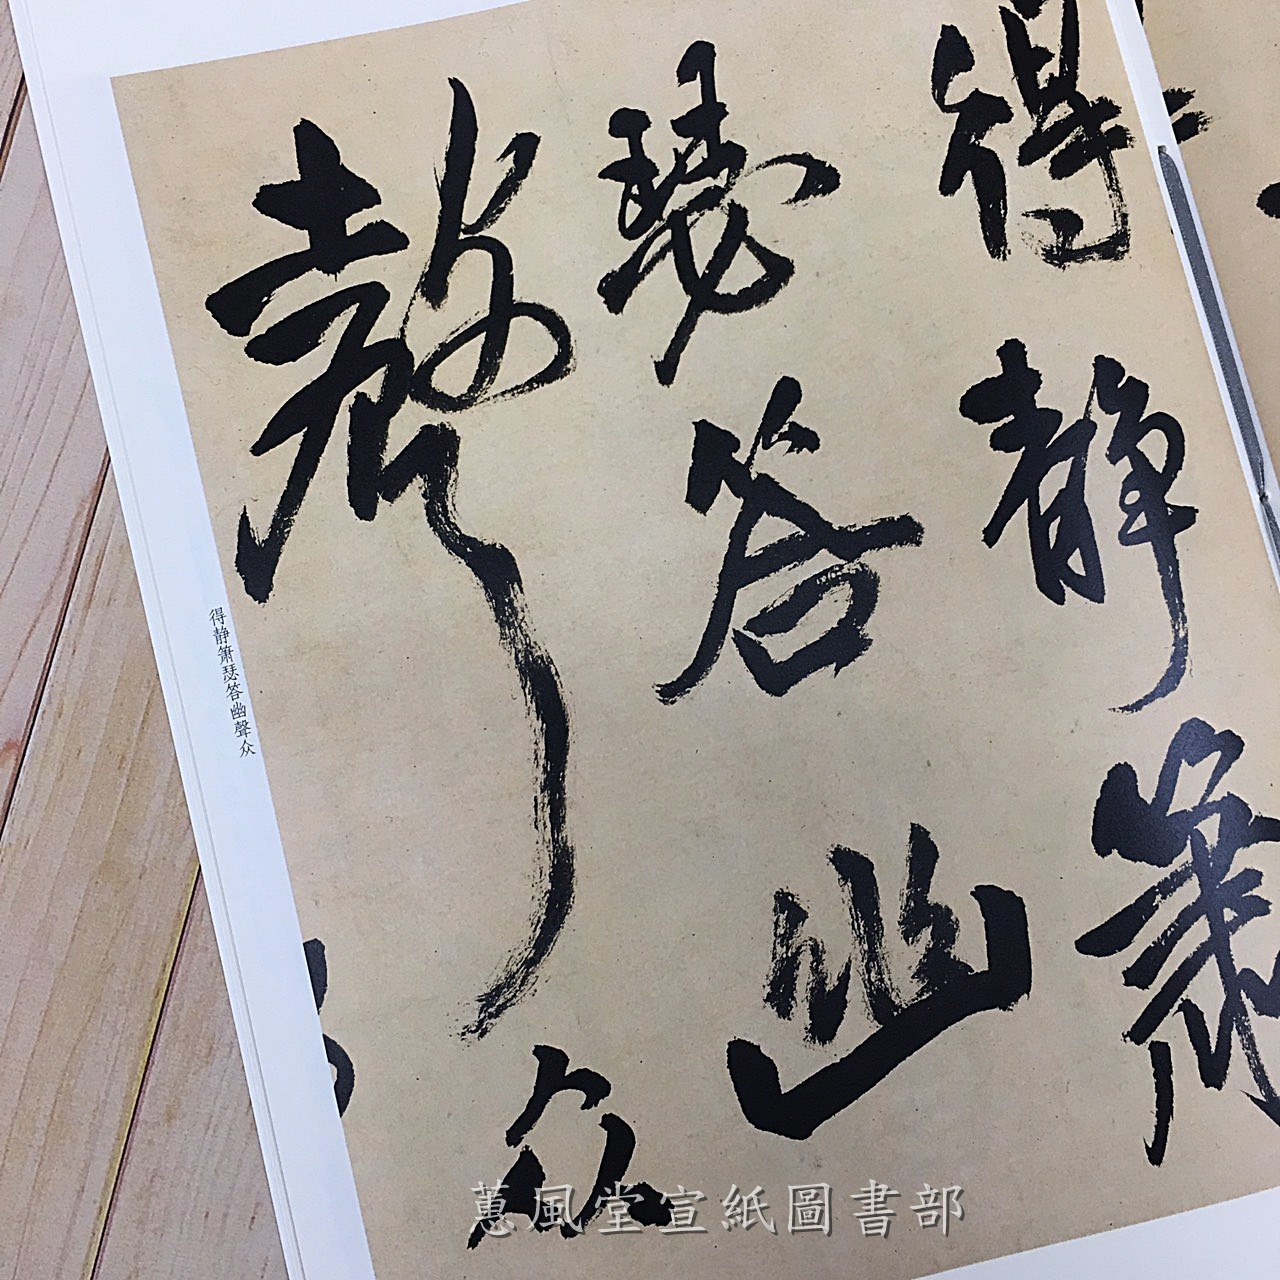 得静箫
瑟答幽
聲众
得静箫瑟答幽聲众
蕙風堂宣紙圖書部